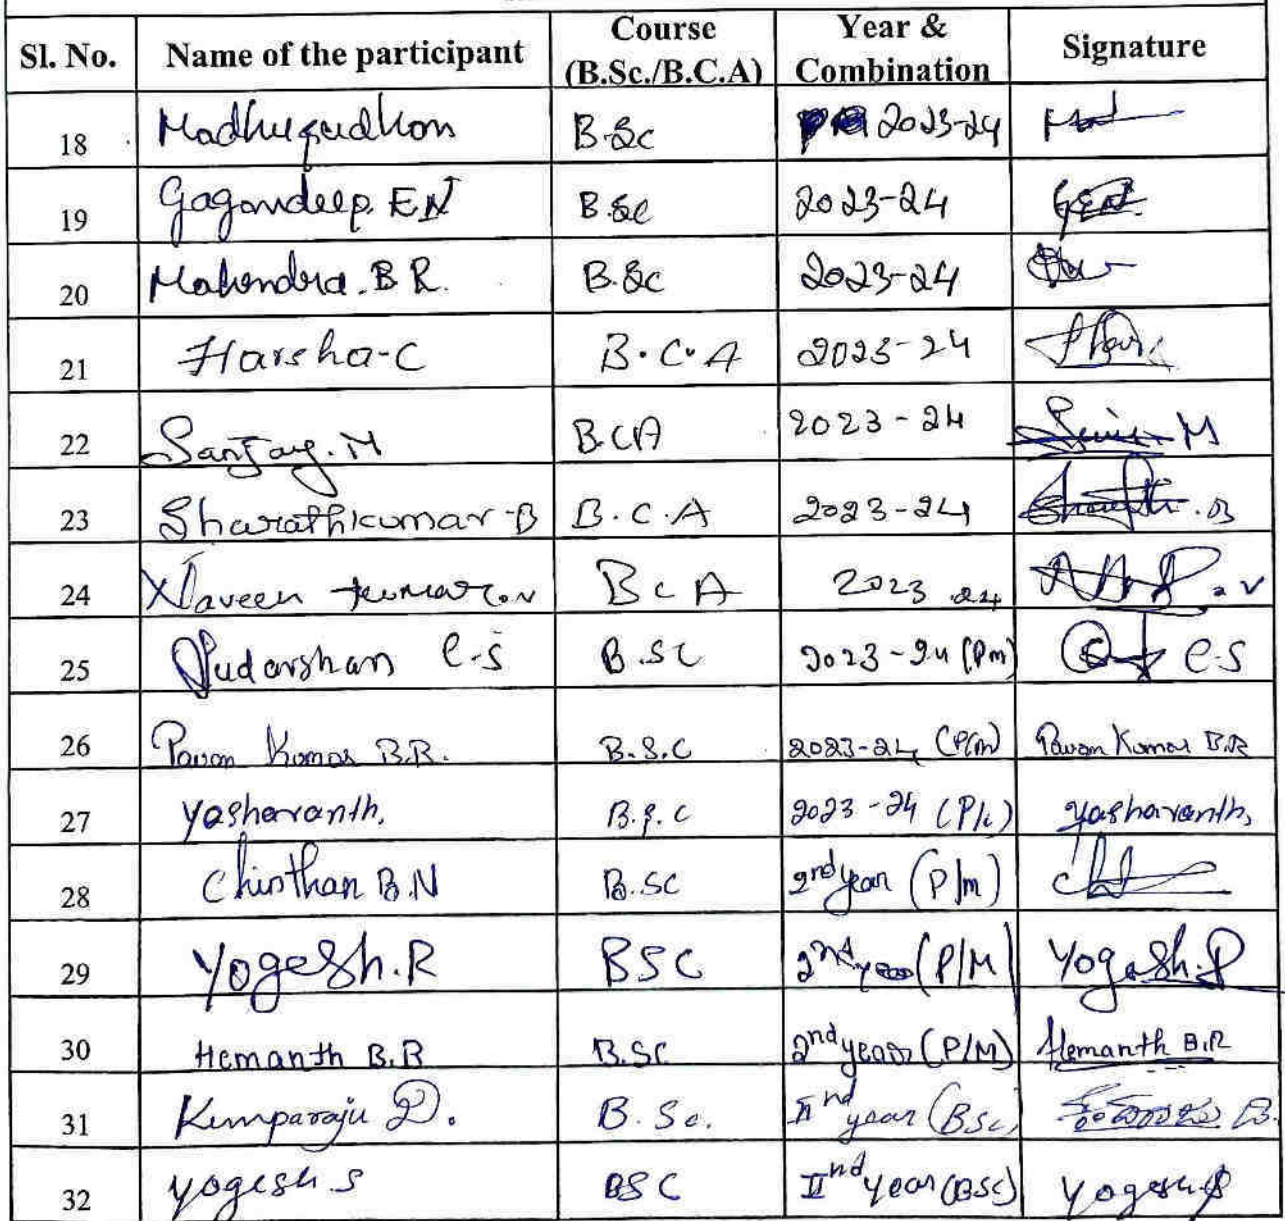 Sl. No. Name of the participant Course (B.Sc./B.C.A) Year & Combination Signature
18 Madhusudhan B.Sc 2023-24
19 Gagandeep. E N B.Sc 2023-24
20 Mahendra. B R. B.Sc 2023-24
21 Harsha-C B.C.A 2023-24
22 Sanjay. M B.CA 2023-24 M
23 Sharathkumar-B B.C.A 2023-24 B
24 Naveen BCA 2023-24
25 Sudarshan C.S B.SC 2023-24 (Pm) C.S
26 Pavan Kumar B.R. B.S.C 2023-24 (P/m) Pavan Kumar B.R
27 Yashavanth, B.S.C 2023-24 (P/c) Yashavanth,
28 Chinthan B.N B.SC 2nd year (P/m)
29 Yogesh.R BSC 2nd year (P/M) Yogesh.R
30 Hemanth B.R B.SC 2nd year (P/M) Hemanth B.R
31 Kemparaju D. B.Sc. IInd year (BSc)
32 Yogesh.S BSC IInd year (BSC) Yogesh.S